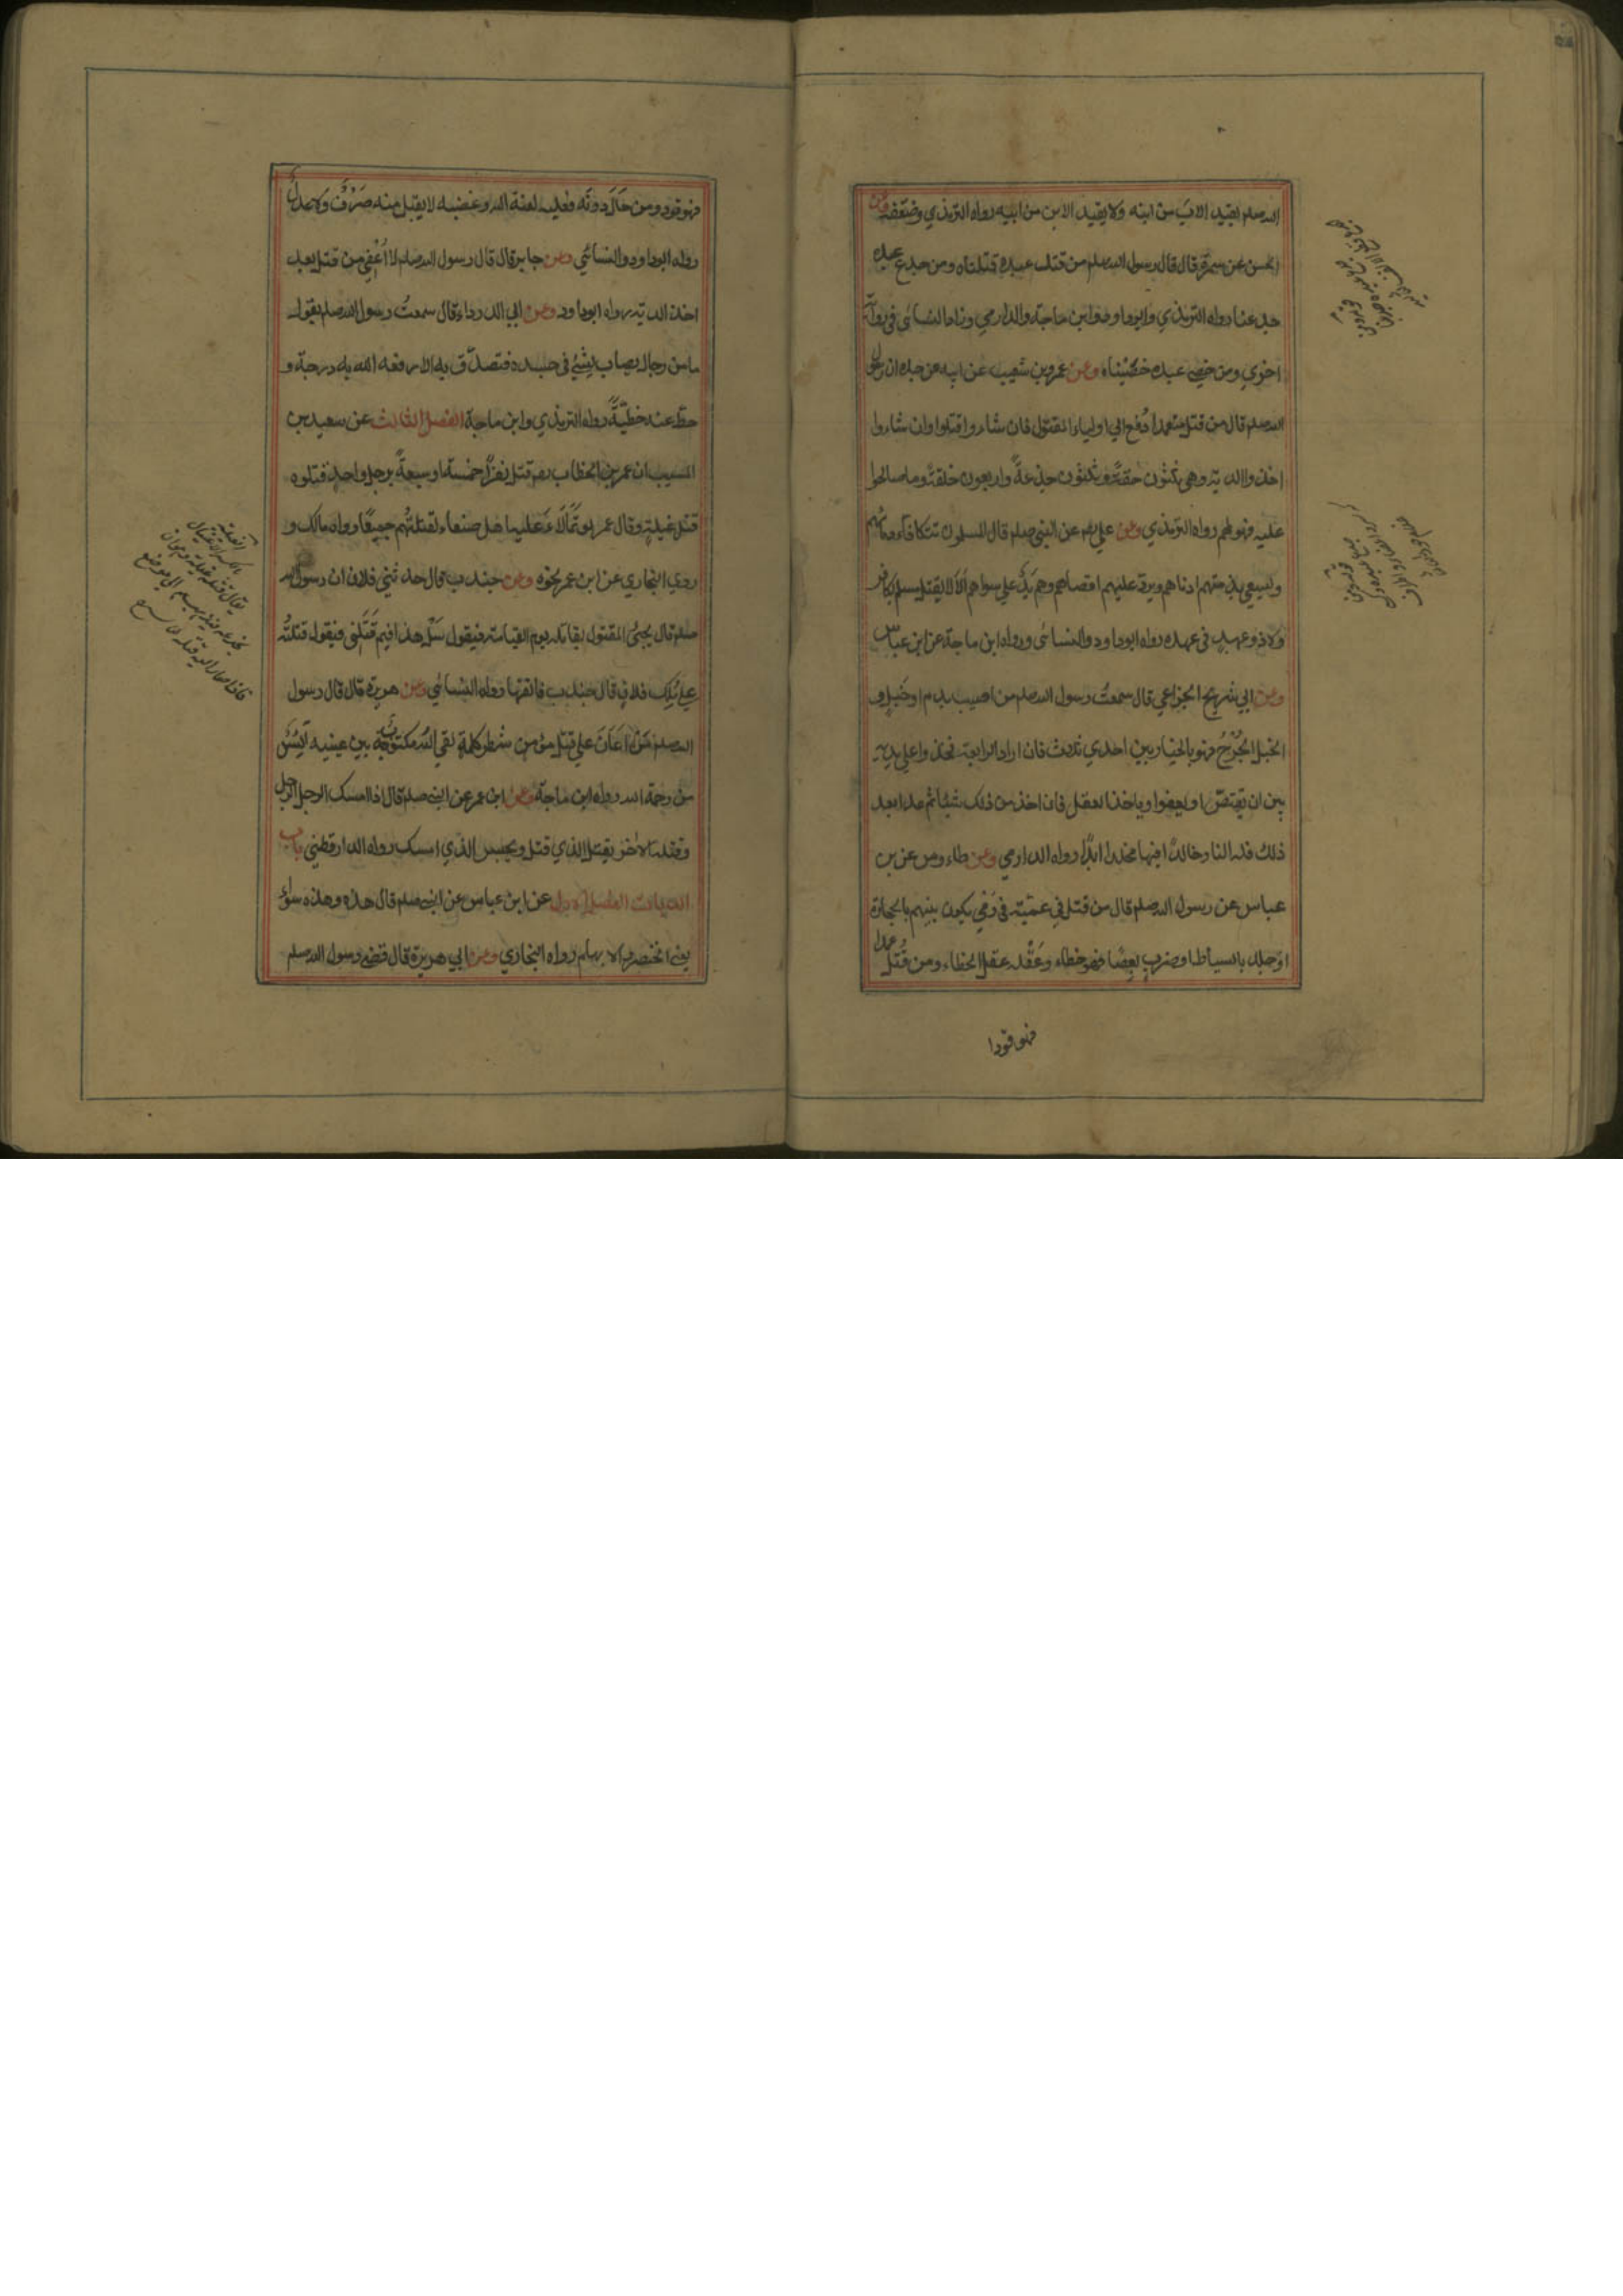 الله صلم يقيد الاب من ابنه ولا يقيد الابن من ابيه رواه الترمذي وضعفه وعن
الحسن عن سمرة قال قال رسول الله صلم من قتل عبده قتلناه ومن جدع عبده
جدعنا رواه الترمذي وابوداود وابن ماجة والدارمي وزاد النسائى فى رواية
اخري ومن خصى عبده خصيناه وعن عمرو بن شعيب عن ابيه عن جده ان رسول
الله صلم قال من قتل متعمدا دُفع الي اولياء المقتول فان شاءوا قتلوا وان شاءوا
اخذوا الدية وهي ثلثون حقة وثلثون جذعةً واربعون خلفة وما صالحوا
عليه فهو لهم رواه الترمذي وعن علي رضه عن النبي صلم قال المسلمون تتكافاء دماءهم
ويسعي بذمتهم ادناهم ويرد عليهم اقصاهم وهم يدٌ علي سواهم الا لا يقتل مسلم بكافر
ولا ذو عهد فى عهده رواه ابوداود والنسائى ورواه ابن ماجة عن ابن عباس
وعن ابي شريح الخزاعي قال سمعتُ رسول الله صلم من اصيب بدم او خبلٍ و
الخبل الجُرْحُ فهو بالخيار بين احدي ثلاث فان اراد الرابعة فخذوا علي يديه
بين ان يقتصّ او يعفوا وياخذ العقل فان اخذ من ذلك شيئا ثم عدا بعد
ذلك فله النار خالدًا فيها مخلدا ابدًا رواه الدارمي وعن طاءوس عن بن
عباس عن رسول الله صلم قال من قتل في عمية فى رَمْيٍ يكون بينهم بالحجارة
او جلد بالسياط او ضربٍ بعصًا فهو خطاء وعَقْله عقل الخطاء ومن قُتل عمدا
فهو قودا
فهو قود ومن حَالَ دونَه فعليه لعنة الله وغضبه لا يقبل منه صَرْفٌ ولا عدلٌ
رواه ابوداود والنسائي وعن جابر قال قال رسول الله صلم لا اُعْفِي من قتل بعد
اخذ الدية رواه ابوداود وعن ابي الدرداء قال سمعتُ رسول الله صلم يقول
ما من رجال يصاب بشئ فى جسده فتصدّق به الا رفعه الله به درجة و
حط عنه خطيّةً رواه الترمذي وابن ماجة الفصل الثالث عن سعيد بن
المسيب ان عمر بن الخطاب رضه قتل نفرًا خمسة او سبعةً برجل واحدٍ قتلوه
قتل غيلةٍ وقال عمر لو تَمَالَاءَ عليه اهل صنعاء لقتلتُهم جميعًا رواه مالك و
روي البخاري عن ابن عمر نحوه وعن جندب قال حدثني فلان ان رسول الله
صلم قال يجئ المقتول بقاتله يوم القيامة فيقول سَلْ هذا فيم قَتَلنى فيقول قتلتُه
علي مُلك فلانٍ قال جندب فاتقها رواه النسائي وعن هريرة قال قال رسول
الله صلم مَن اَعَانَ علي قتل مؤمن شطر كلمةٍ لقي الله مكتوبٌ بين عينيه آيسٌ
من رحمة الله رواه ابن ماجة وعن ابن عمر عن النبي صلم قال اذا امسك الرجل الرجل
وقتله الآخر يقتل الذي قتل ويحبس الذي امسك رواه الدارقطني باب
الديات الفصل الاول عن ابن عباس عن النبي صلم قال هذه وهذه سواءٌ
يعني الخنصر والابهام رواه البخاري وعن ابي هريرة قال قضى رسول الله صلم